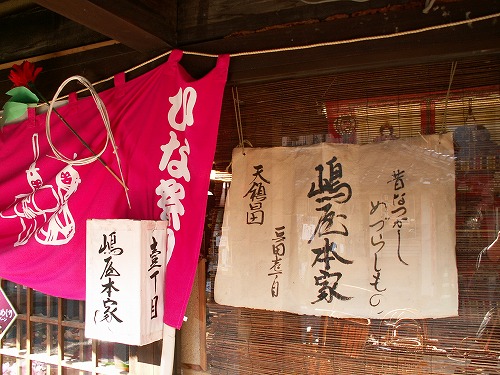 ひな祭り
壹丁目
嶋屋本家
昔なつかし
めづらしもの
嶋屋本家
天領日田
豆田壱丁目